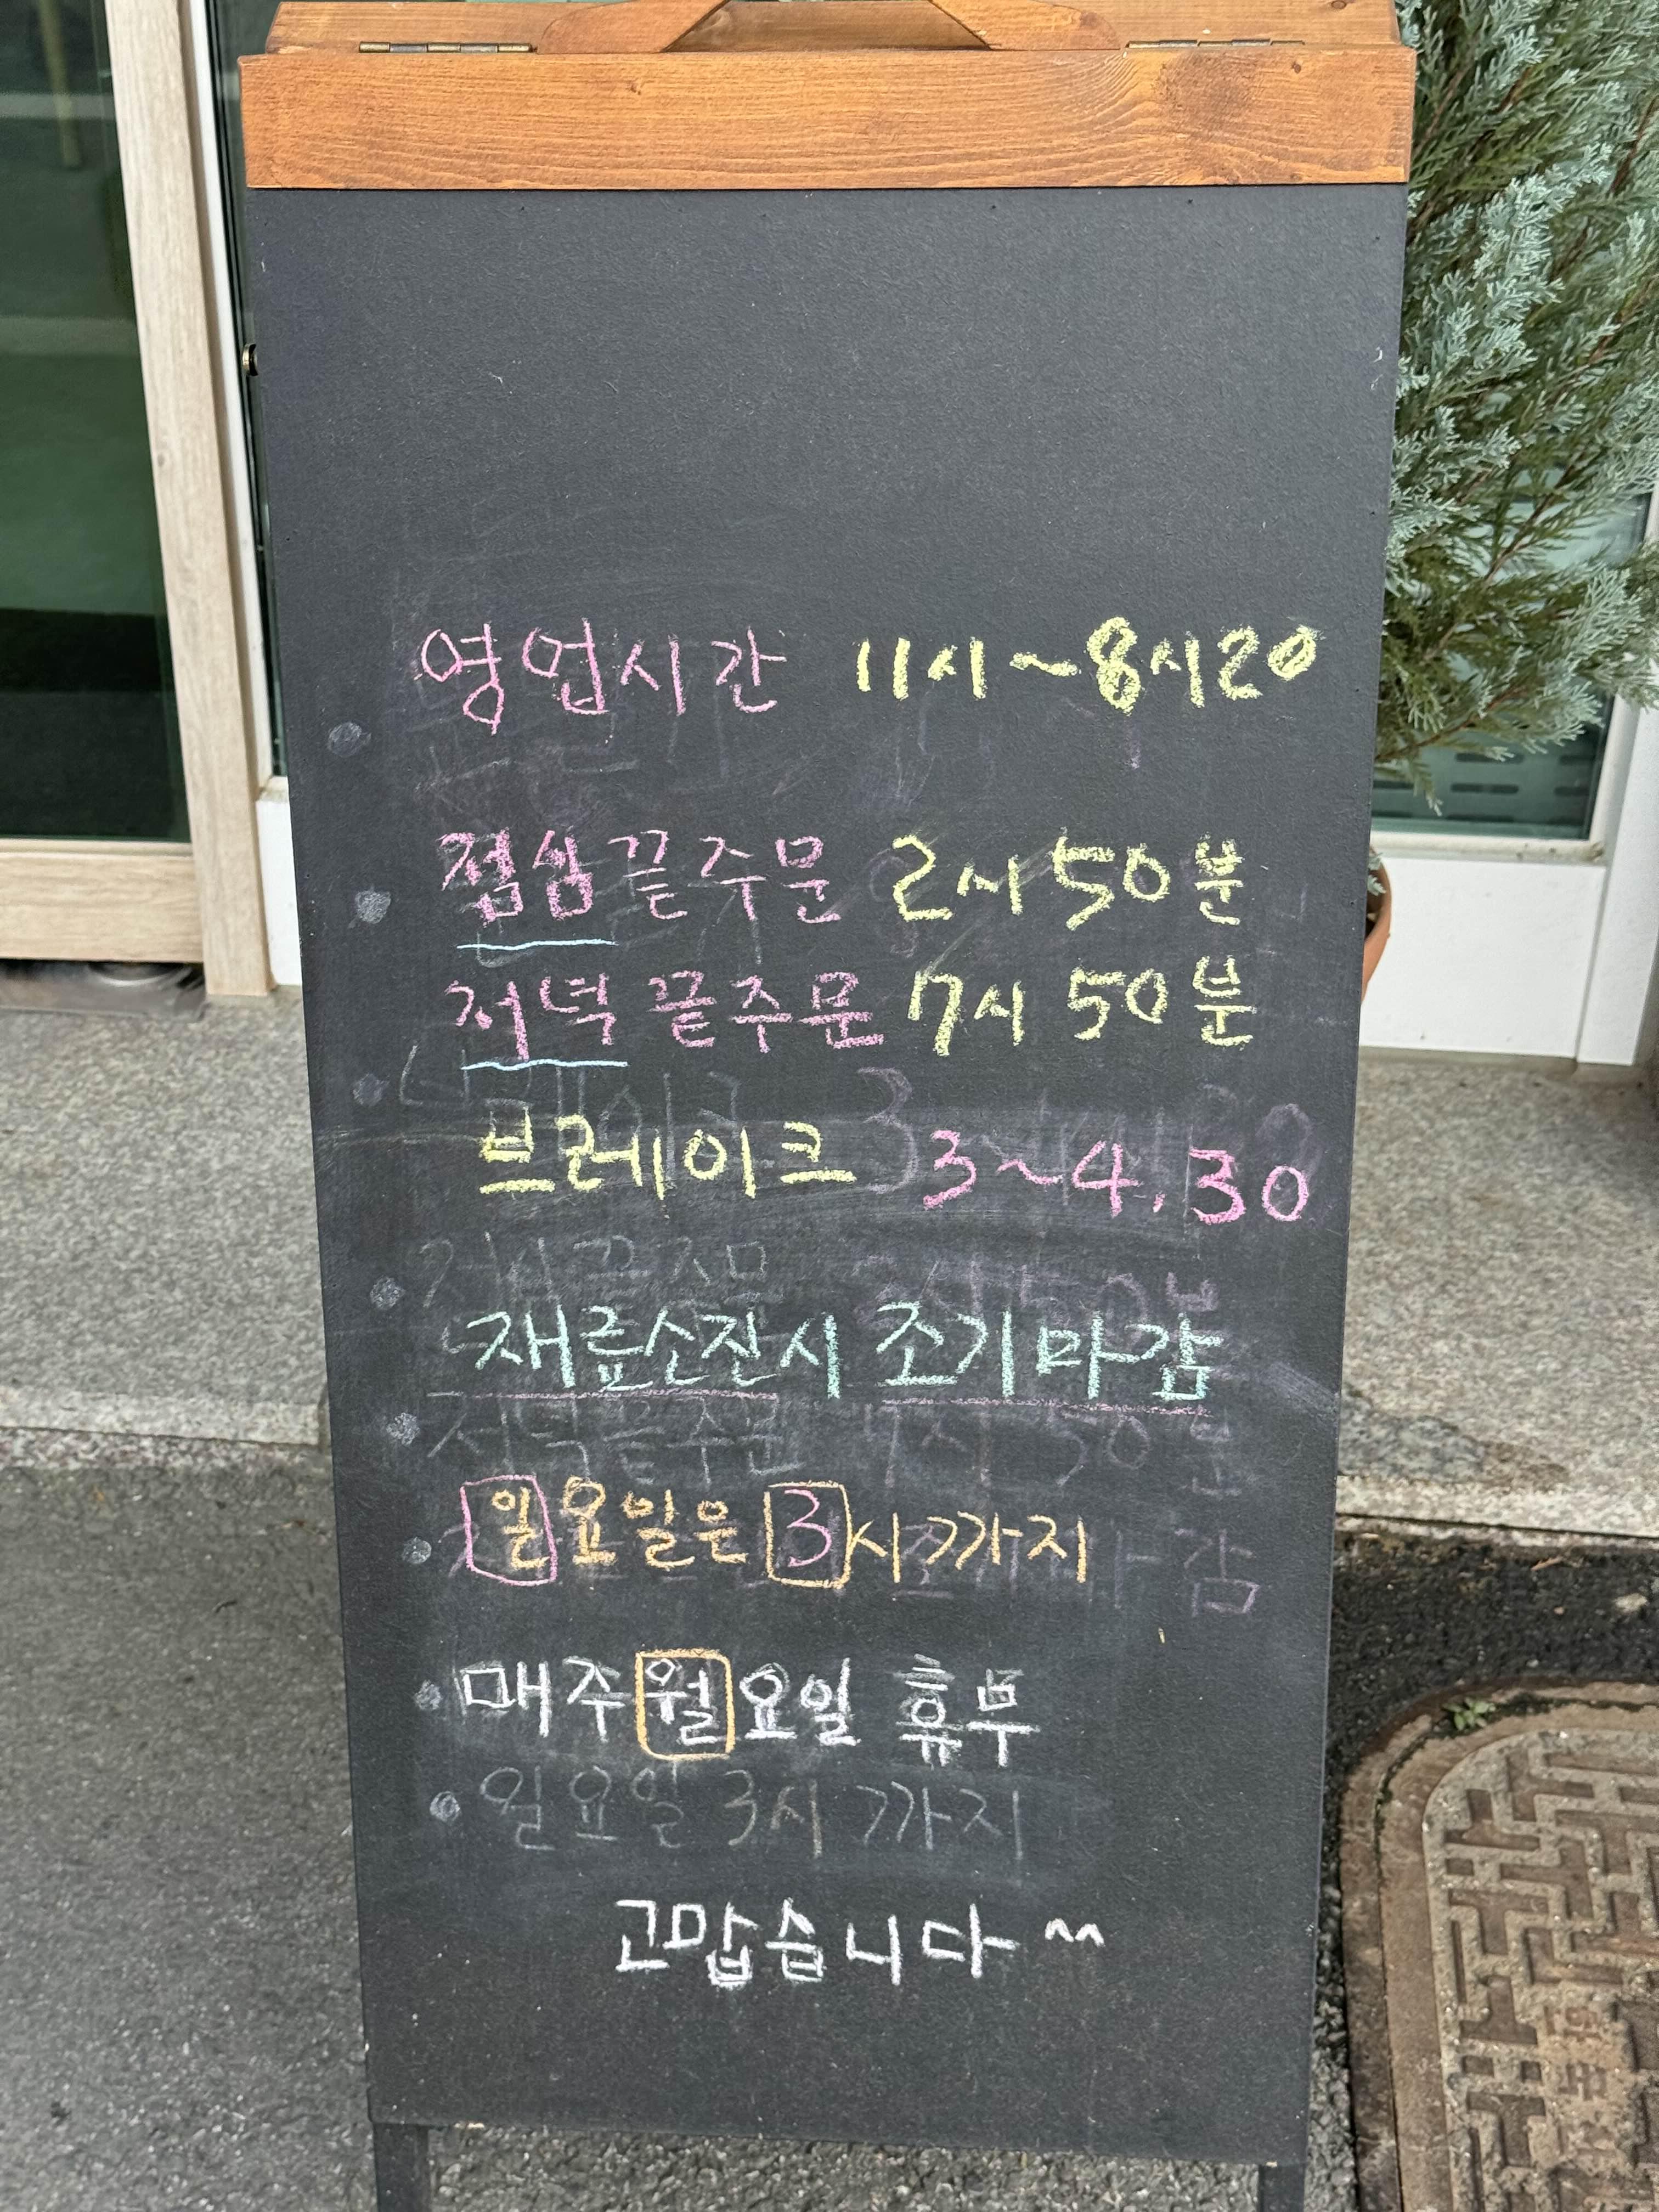 영업시간 11시~8시20
점심 끝주문 2시 50분
저녁 끝주문 7시 50분
브레이크 3~4.30
재료소진시 조기마감
일요일은 3시까지
매주 월요일 휴무
일요일 3시 까지
고맙습니다 ^^